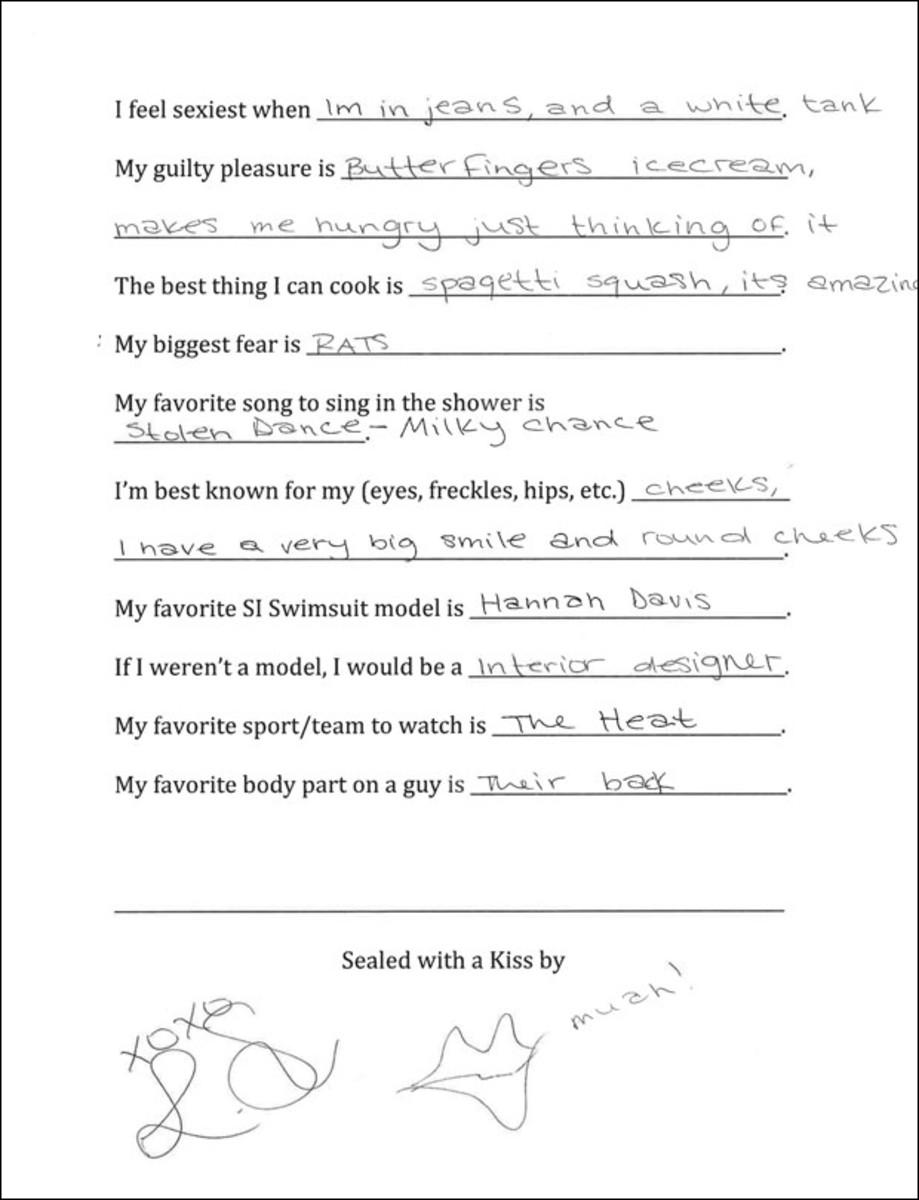 I feel sexiest when Im in jeans, and a white. tank
My guilty pleasure is Butterfingers icecream,
makes me hungry just thinking of. it
The best thing I can cook is spagetti squash, its. amazing
: My biggest fear is RATS.
My favorite song to sing in the shower is
Stolen Dance.- Milky chance
I'm best known for my (eyes, freckles, hips, etc.) cheeks,
I have a very big smile and round cheeks.
My favorite SI Swimsuit model is Hannah Davis.
If I weren't a model, I would be a Interior designer.
My favorite sport/team to watch is The Heat.
My favorite body part on a guy is Their back.
Sealed with a Kiss by
xoxo
muah!